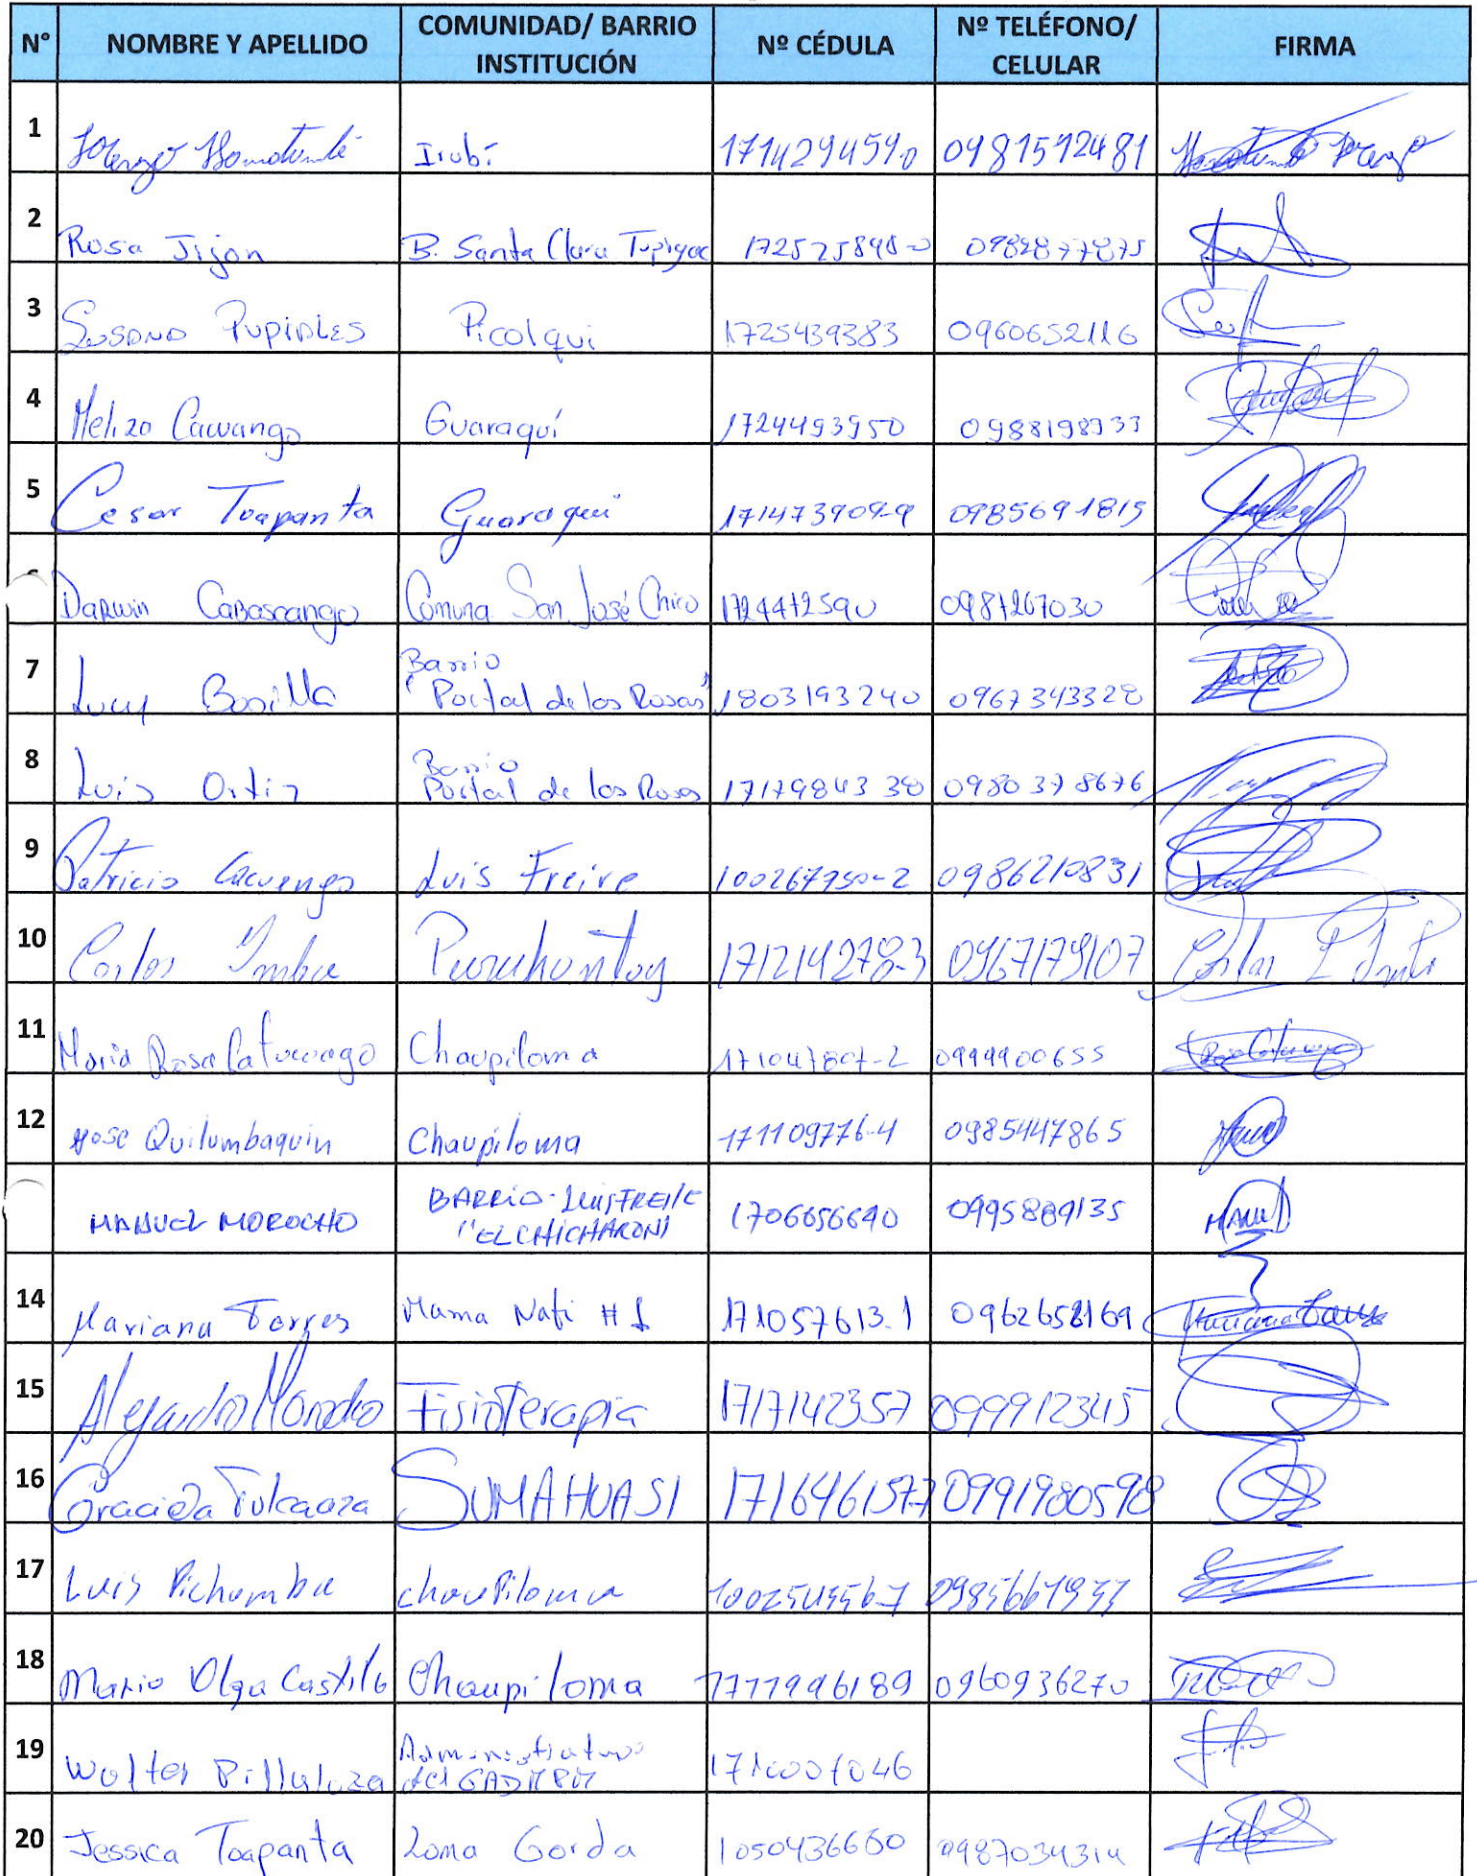 N° NOMBRE Y APELLIDO COMUNIDAD/ BARRIO INSTITUCIÓN Nº CÉDULA Nº TELÉFONO/ CELULAR FIRMA
1 Irubí 1714294590 0981592481
2 Rosa Jijon B. Santa Clara
3 Susana Pupiales Picolqui 1725439383 0960652116
4 Meliza Cacuango Guaraquí 1724493950
5 Cesar Toapanta Guaraquí 171473909-9 0985691815
Darwin Cabascango Comuna San José Chico 1724472590 0987267030
7 Lucy Bonilla Barrio "Portal de las Rosas" 1803193240 0967343328
8 Luis Ortiz Barrio Portal de las Rosas 0980378676
9 Patricio Cacuango Luis Freire 100267950-2 0986210831
10 Carlos Imba Puruhantag 171214278-3 0967179107
11 Maria Rosa Catucuago Chaupiloma 171047807-2
12 Jose Quilumbaquin Chaupiloma 171109776-4 0985447865
MANUEL MOROCHO BARRIO-LUIS FREILE 1706656640 0995889135
14 Mariana Torres Mama Nati #1 171057613.1 0962658169
15 Alejandro Fisioterapia 1717142357 0999123415
16 Graciela SUMAHUASI 171646157-7 0991980598
17 Luis Pichamba chaupiloma
18 Maria Olga Castillo Chaupiloma 0960936270
19 Walter Administrativo del GADMPM
20 Jessica Toapanta Loma Gorda 1050436660 0987034314